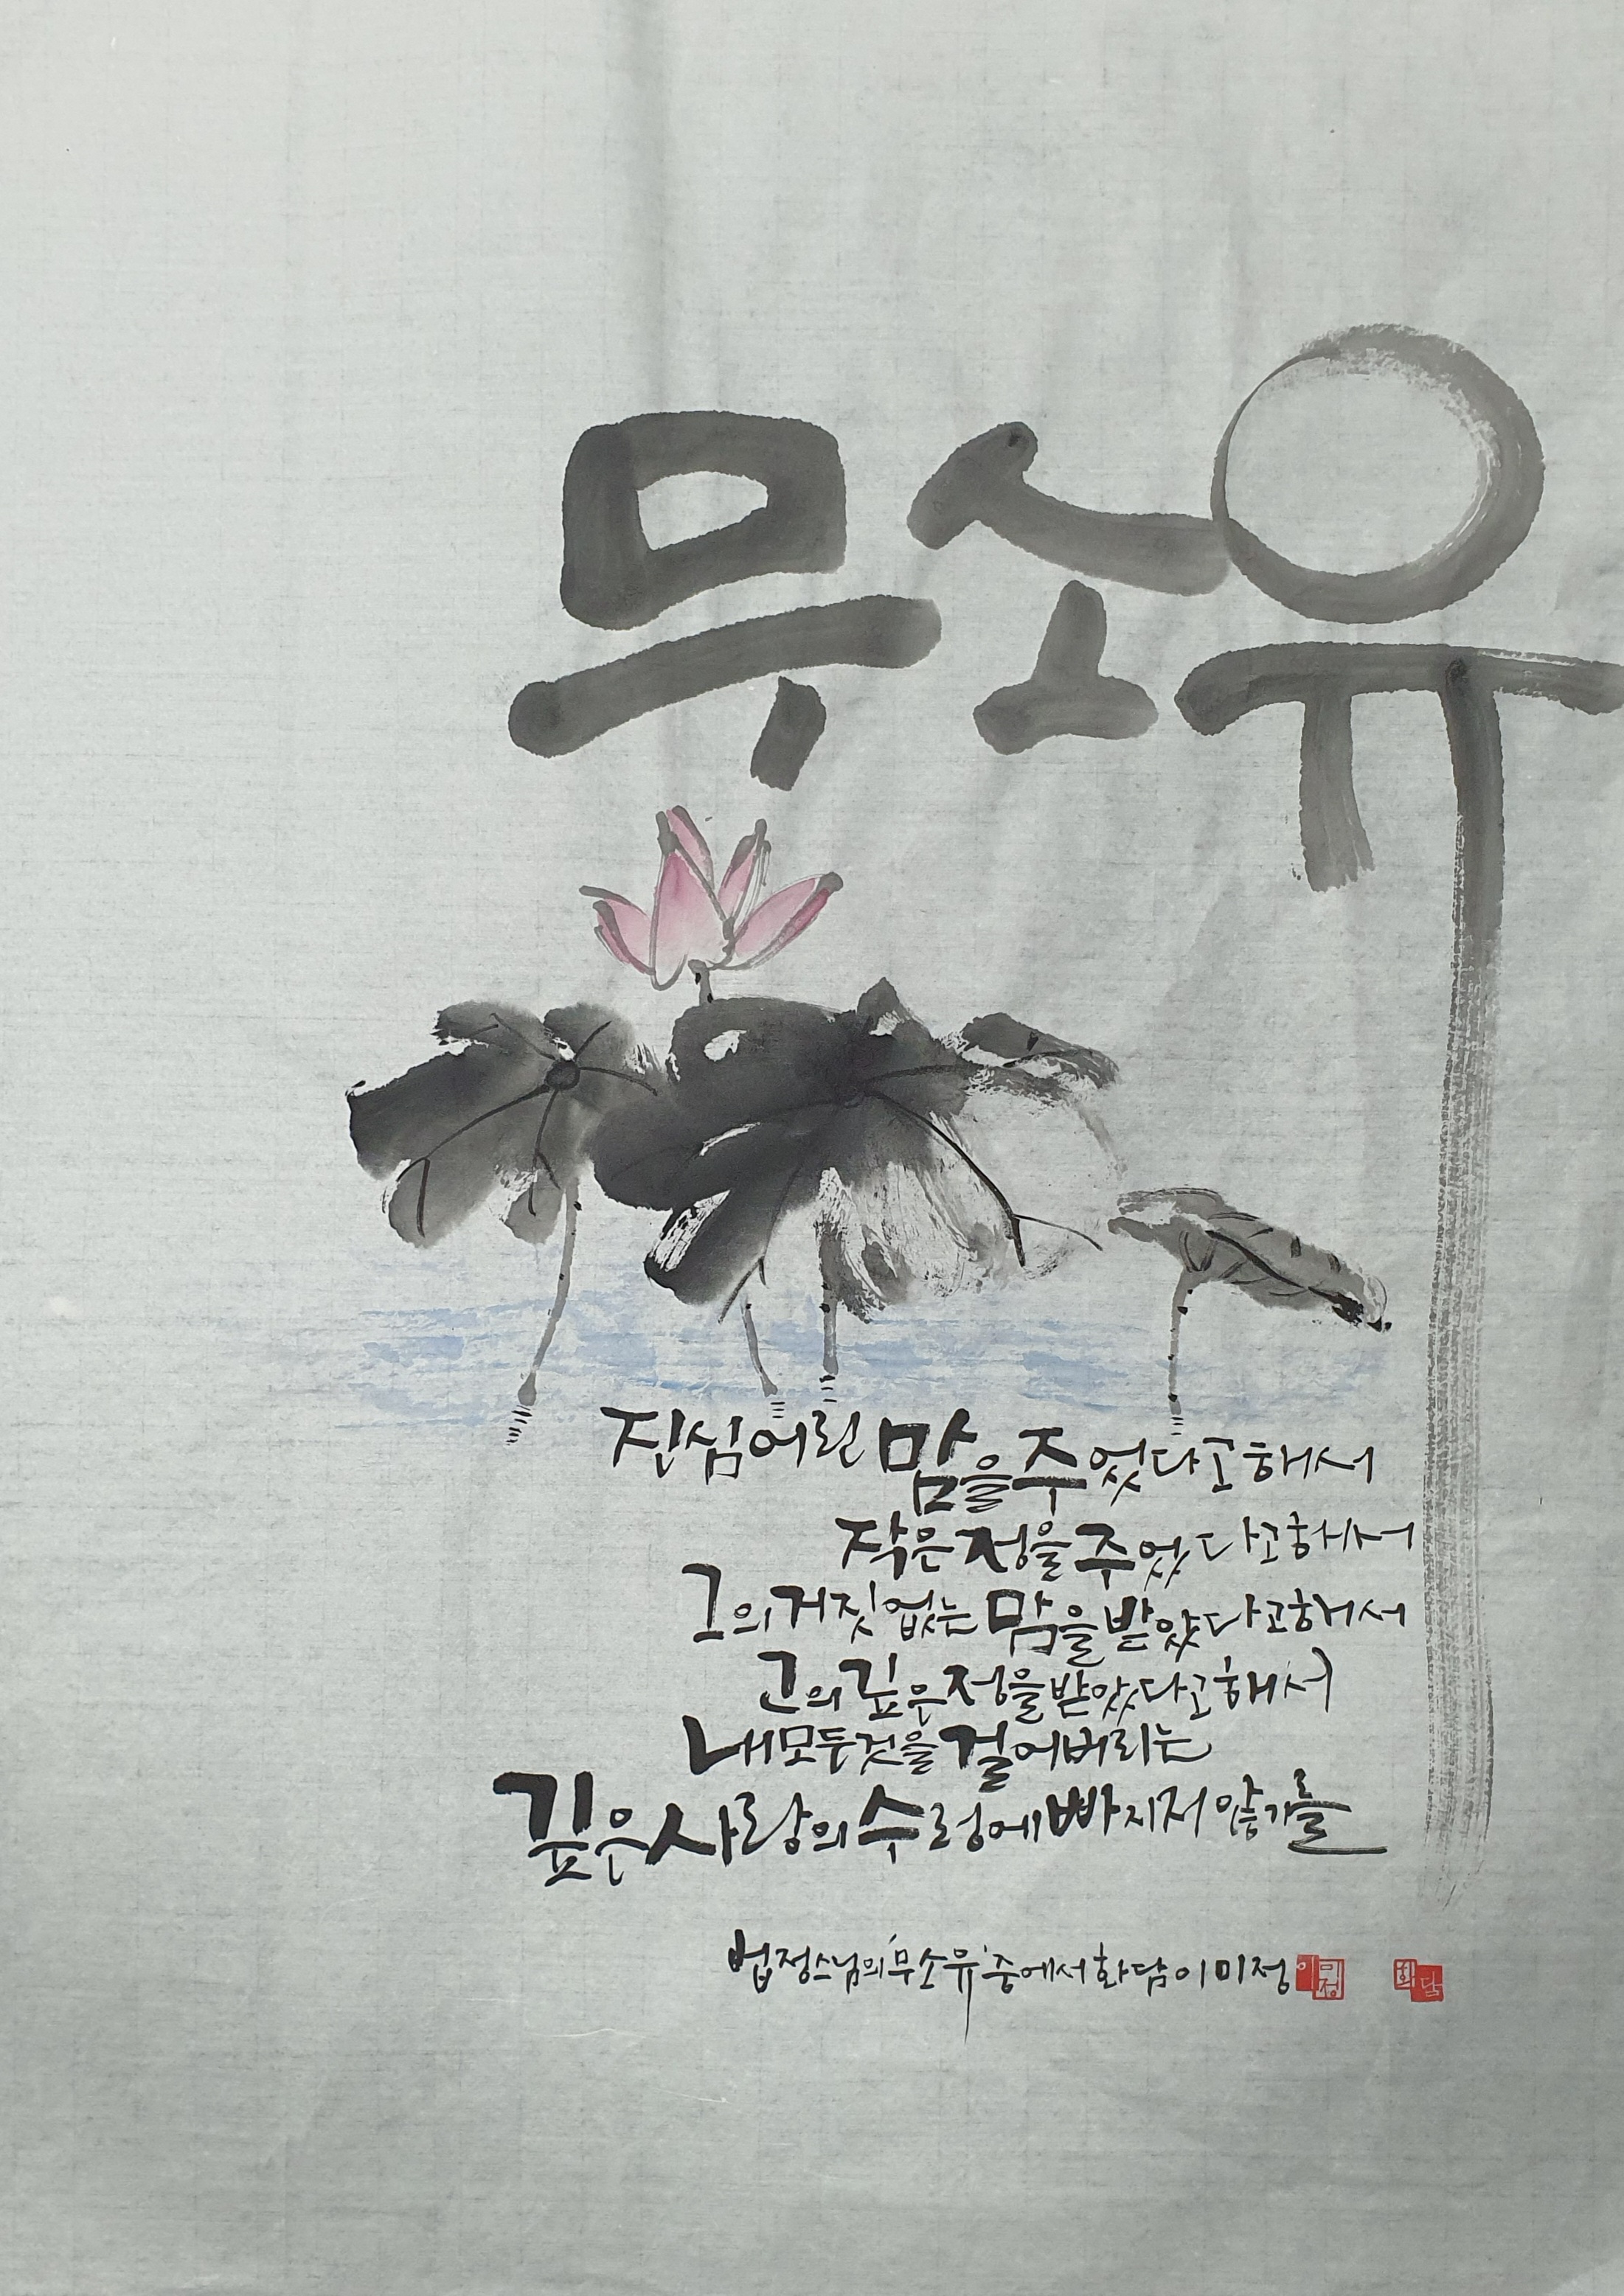 무소유
진심어린 맘을 주었다고 해서
작은 정을 주었다고 해서
그의 거짓없는 맘을 받았다고 해서
그의 깊은 정을 받았다고 해서
내 모두것을 걸어버리는
깊은 사랑의 수렁에 빠지지 않기를
법정스님의 '무소유' 중에서 화담 이미정
이미정
화담